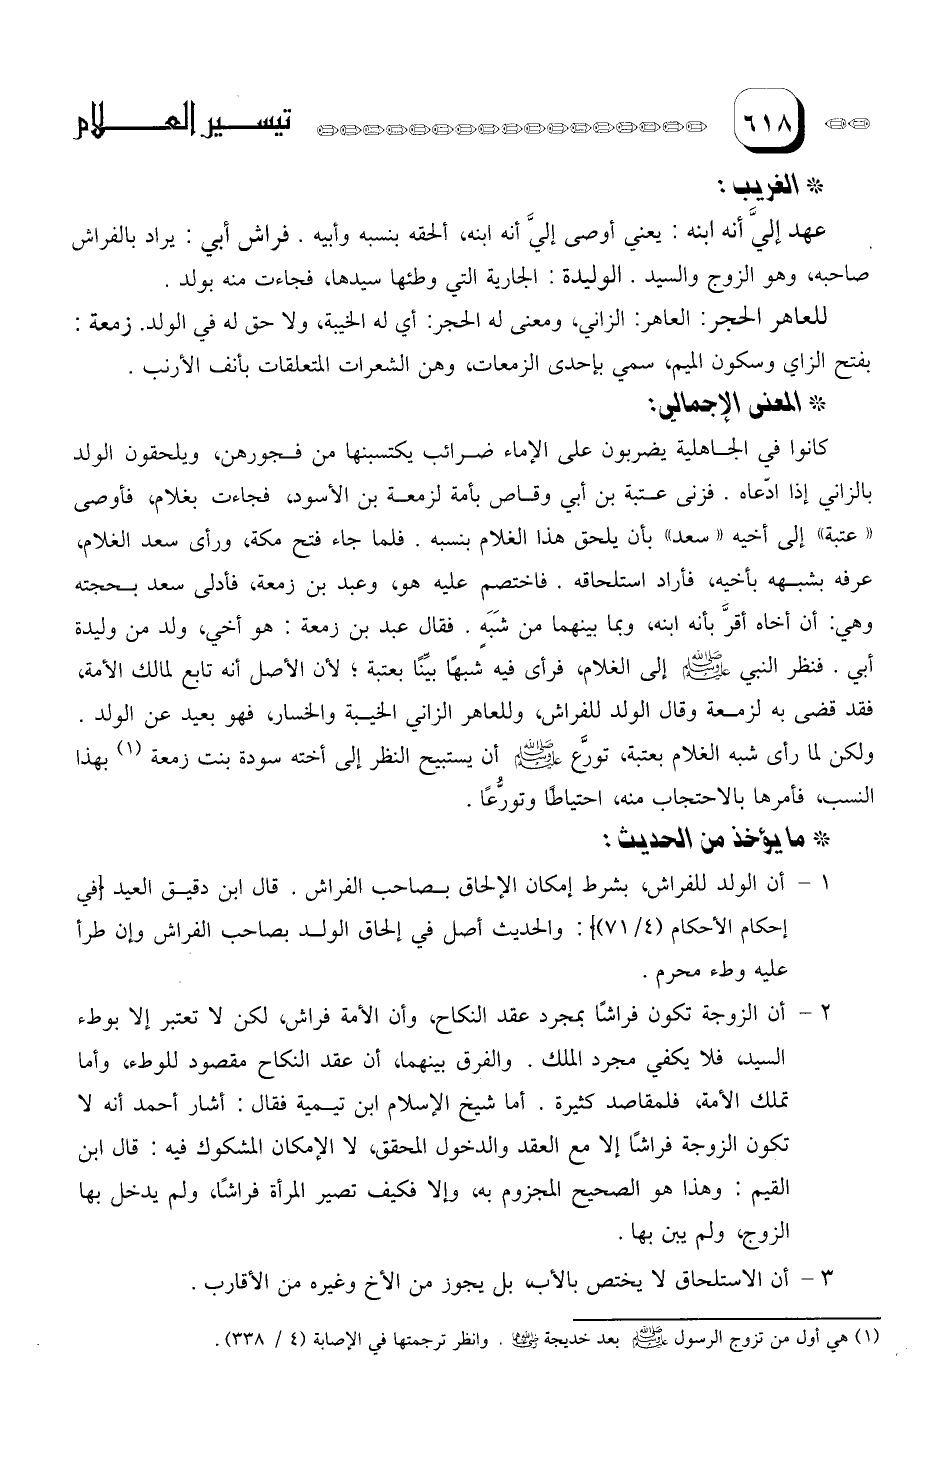 ٦١٨ تيسير العلام
* الغريب :
عهد إليَّ أنه ابنه : يعني أوصى إليَّ أنه ابنه، ألحقه بنسبه وأبيه . فراش أبي : يراد بالفراش
صاحبه، وهو الزوج والسيد . الوليدة : الجارية التي وطئها سيدها، فجاءت منه بولد .
للعاهر الحجر: العاهر: الزاني، ومعنى له الحجر: أي له الخيبة، ولا حق له في الولد. زمعة :
بفتح الزاي وسكون الميم، سمي بإحدى الزمعات، وهن الشعرات المتعلقات بأنف الأرنب .
* المعنى الإجمالي:
كانوا في الجاهلية يضربون على الإماء ضرائب يكتسبنها من فجورهن، ويلحقون الولد
بالزاني إذا ادّعاه . فزنى عتبة بن أبي وقاص بأمة لزمعة بن الأسود، فجاءت بغلام، فأوصى
«عتبة» إلى أخيه «سعد» بأن يلحق هذا الغلام بنسبه . فلما جاء فتح مكة، ورأى سعد الغلام،
عرفه بشبهه بأخيه، فأراد استلحاقه . فاختصم عليه هو، وعبد بن زمعة، فأدلى سعد بحجته
وهي: أن أخاه أقرَّ بأنه ابنه، وبما بينهما من شَبَهٍ . فقال عبد بن زمعة : هو أخي، ولد من وليدة
أبي . فنظر النبي ﷺ إلى الغلام، فرأى فيه شبهًا بيِّنًا بعتبة ؛ لأن الأصل أنه تابع لمالك الأمة،
فقد قضى به لزمعة وقال الولد للفراش، وللعاهر الزاني الخيبة والخسار، فهو بعيد عن الولد .
ولكن لما رأى شبه الغلام بعتبة، تورَّع ﷺ أن يستبيح النظر إلى أخته سودة بنت زمعة (١) بهذا
النسب، فأمرها بالاحتجاب منه، احتياطًا وتورُّعًا .
* ما يؤخذ من الحديث :
١ - أن الولد للفراش، بشرط إمكان الإلحاق بصاحب الفراش . قال ابن دقيق العيد {في
إحكام الأحكام (٤/ ٧١)} : والحديث أصل في إلحاق الولد بصاحب الفراش وإن طرأ
عليه وطء محرم .
٢ - أن الزوجة تكون فراشًا بمجرد عقد النكاح، وأن الأمة فراش، لكن لا تعتبر إلا بوطء
السيد، فلا يكفي مجرد الملك . والفرق بينهما، أن عقد النكاح مقصود للوطء، وأما
تملك الأمة، فلمقاصد كثيرة . أما شيخ الإسلام ابن تيمية فقال : أشار أحمد أنه لا
تكون الزوجة فراشًا إلا مع العقد والدخول المحقق، لا الإمكان المشكوك فيه : قال ابن
القيم : وهذا هو الصحيح المجزوم به، وإلا فكيف تصير المرأة فراشًا، ولم يدخل بها
الزوج، ولم يبن بها .
٣ - أن الاستلحاق لا يختص بالأب، بل يجوز من الأخ وغيره من الأقارب .
(١) هي أول من تزوج الرسول ﷺ بعد خديجة رضي الله عنها . وانظر ترجمتها في الإصابة (٤ / ٣٣٨).